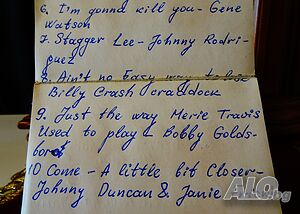 6. I'm gonna kill you - Gene
Watson
7. Stagger Lee - Johnny Rodri-
guez
8. Ain't no Easy way to
Billy Crash craddock
9. Just the way Merie Travis
Used to play - Bobby Golds-
boro
10 Come - A little bit Closer-
Johnny Duncan & Janie
ALO.bg